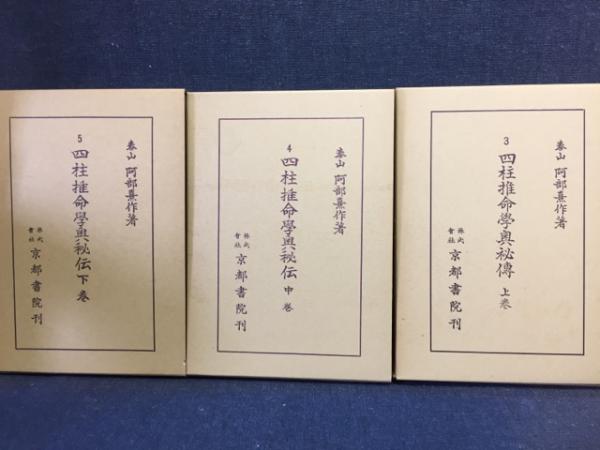 泰山 阿部熹作著
3
四柱推命學奥祕傳 上巻
株式會社 京都書院刊
泰山 阿部熹作著
4
四柱推命學奥秘伝 中巻
株式會社 京都書院刊
泰山 阿部熹作著
5
四柱推命學奥秘伝 下巻
株式會社 京都書院刊